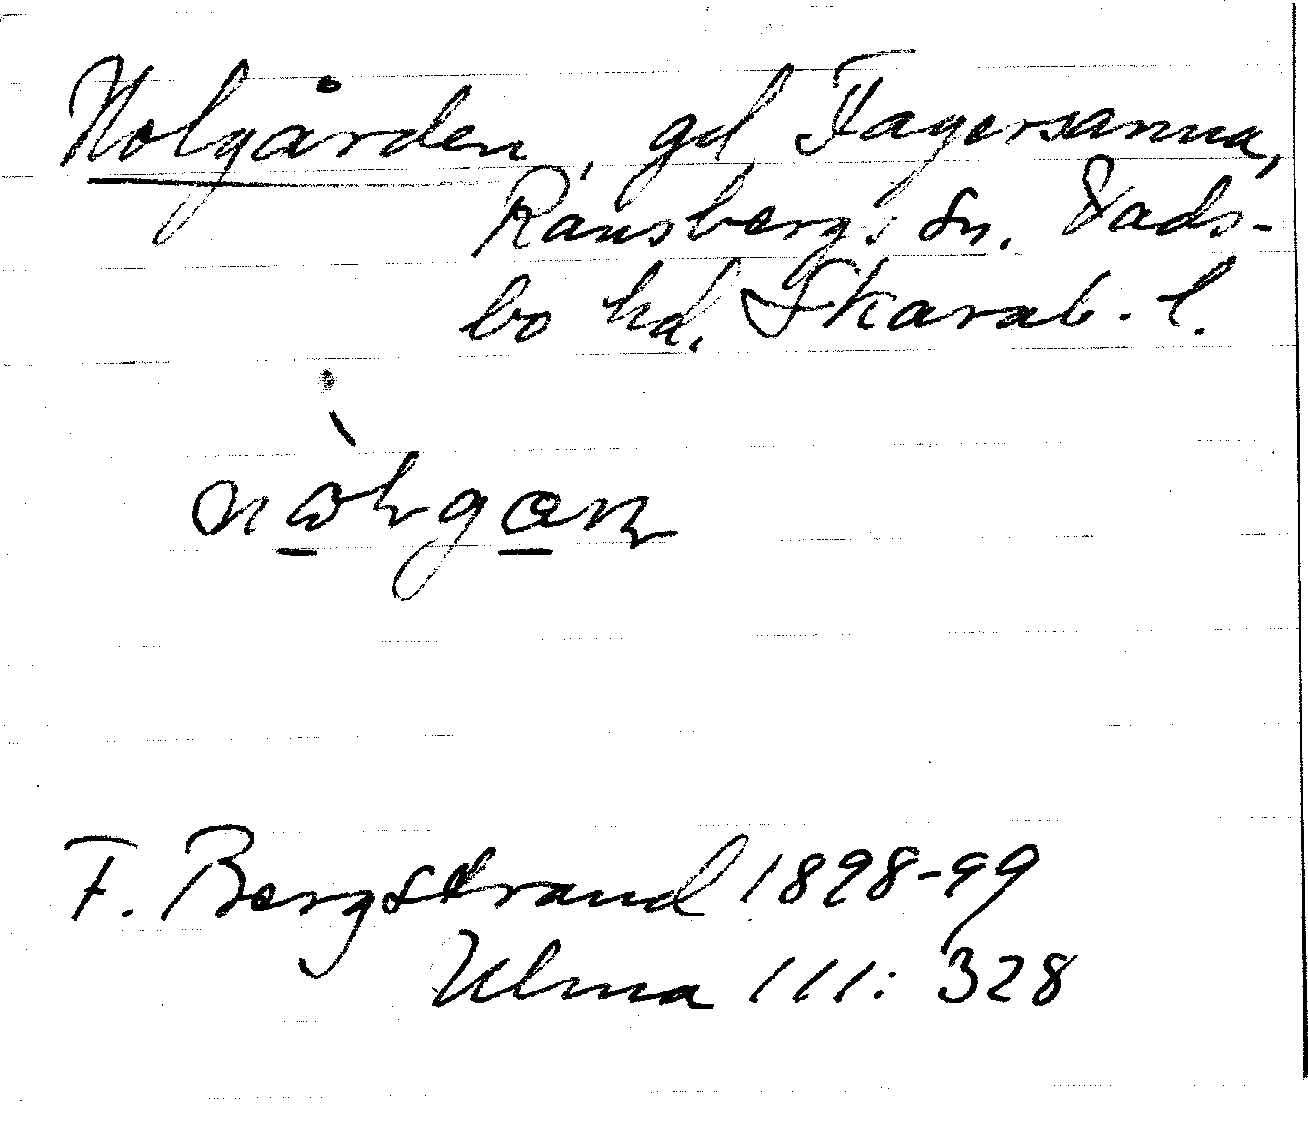 Nolgården, gd Fagersanna,
Ransbergs sn. Vads-
bo hd. Skarab. l.
F. Bergstrand 1898-99
Ulma 111: 328